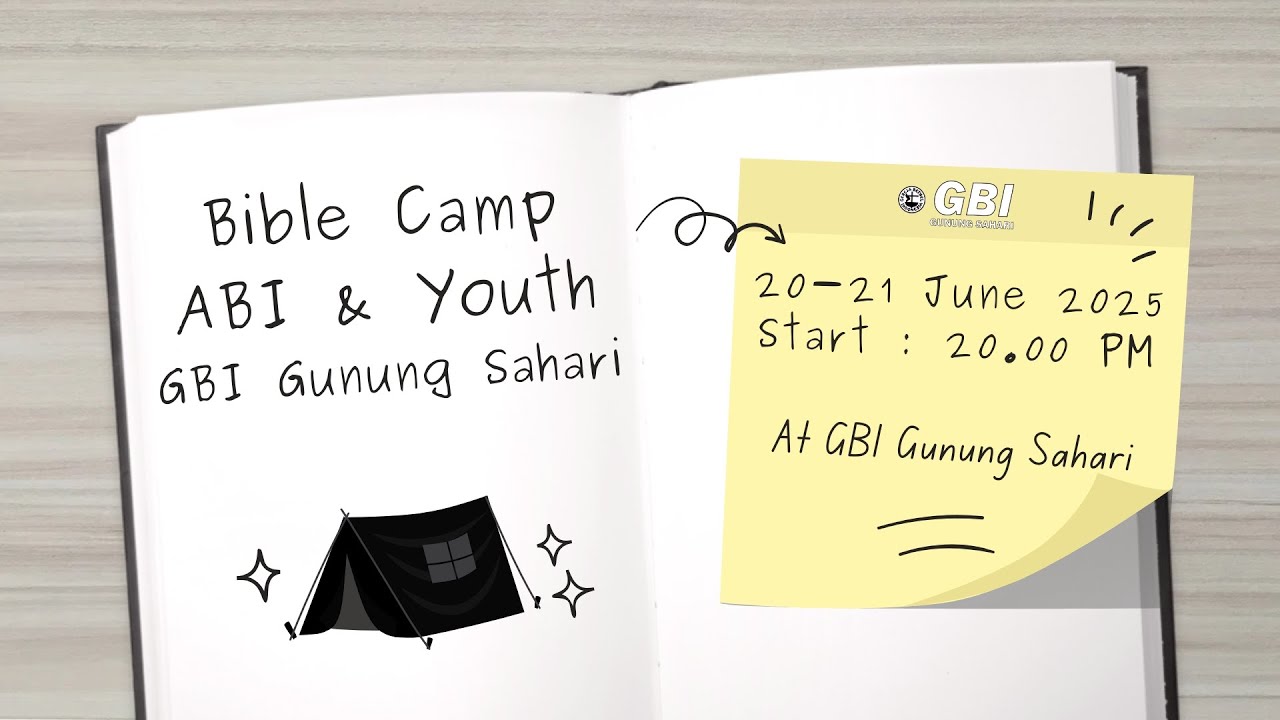 Bible Camp
ABI & Youth
GBI Gunung Sahari
GBI
GUNUNG SAHARI
20-21 June 2025
Start : 20.00 PM
At GBI Gunung Sahari